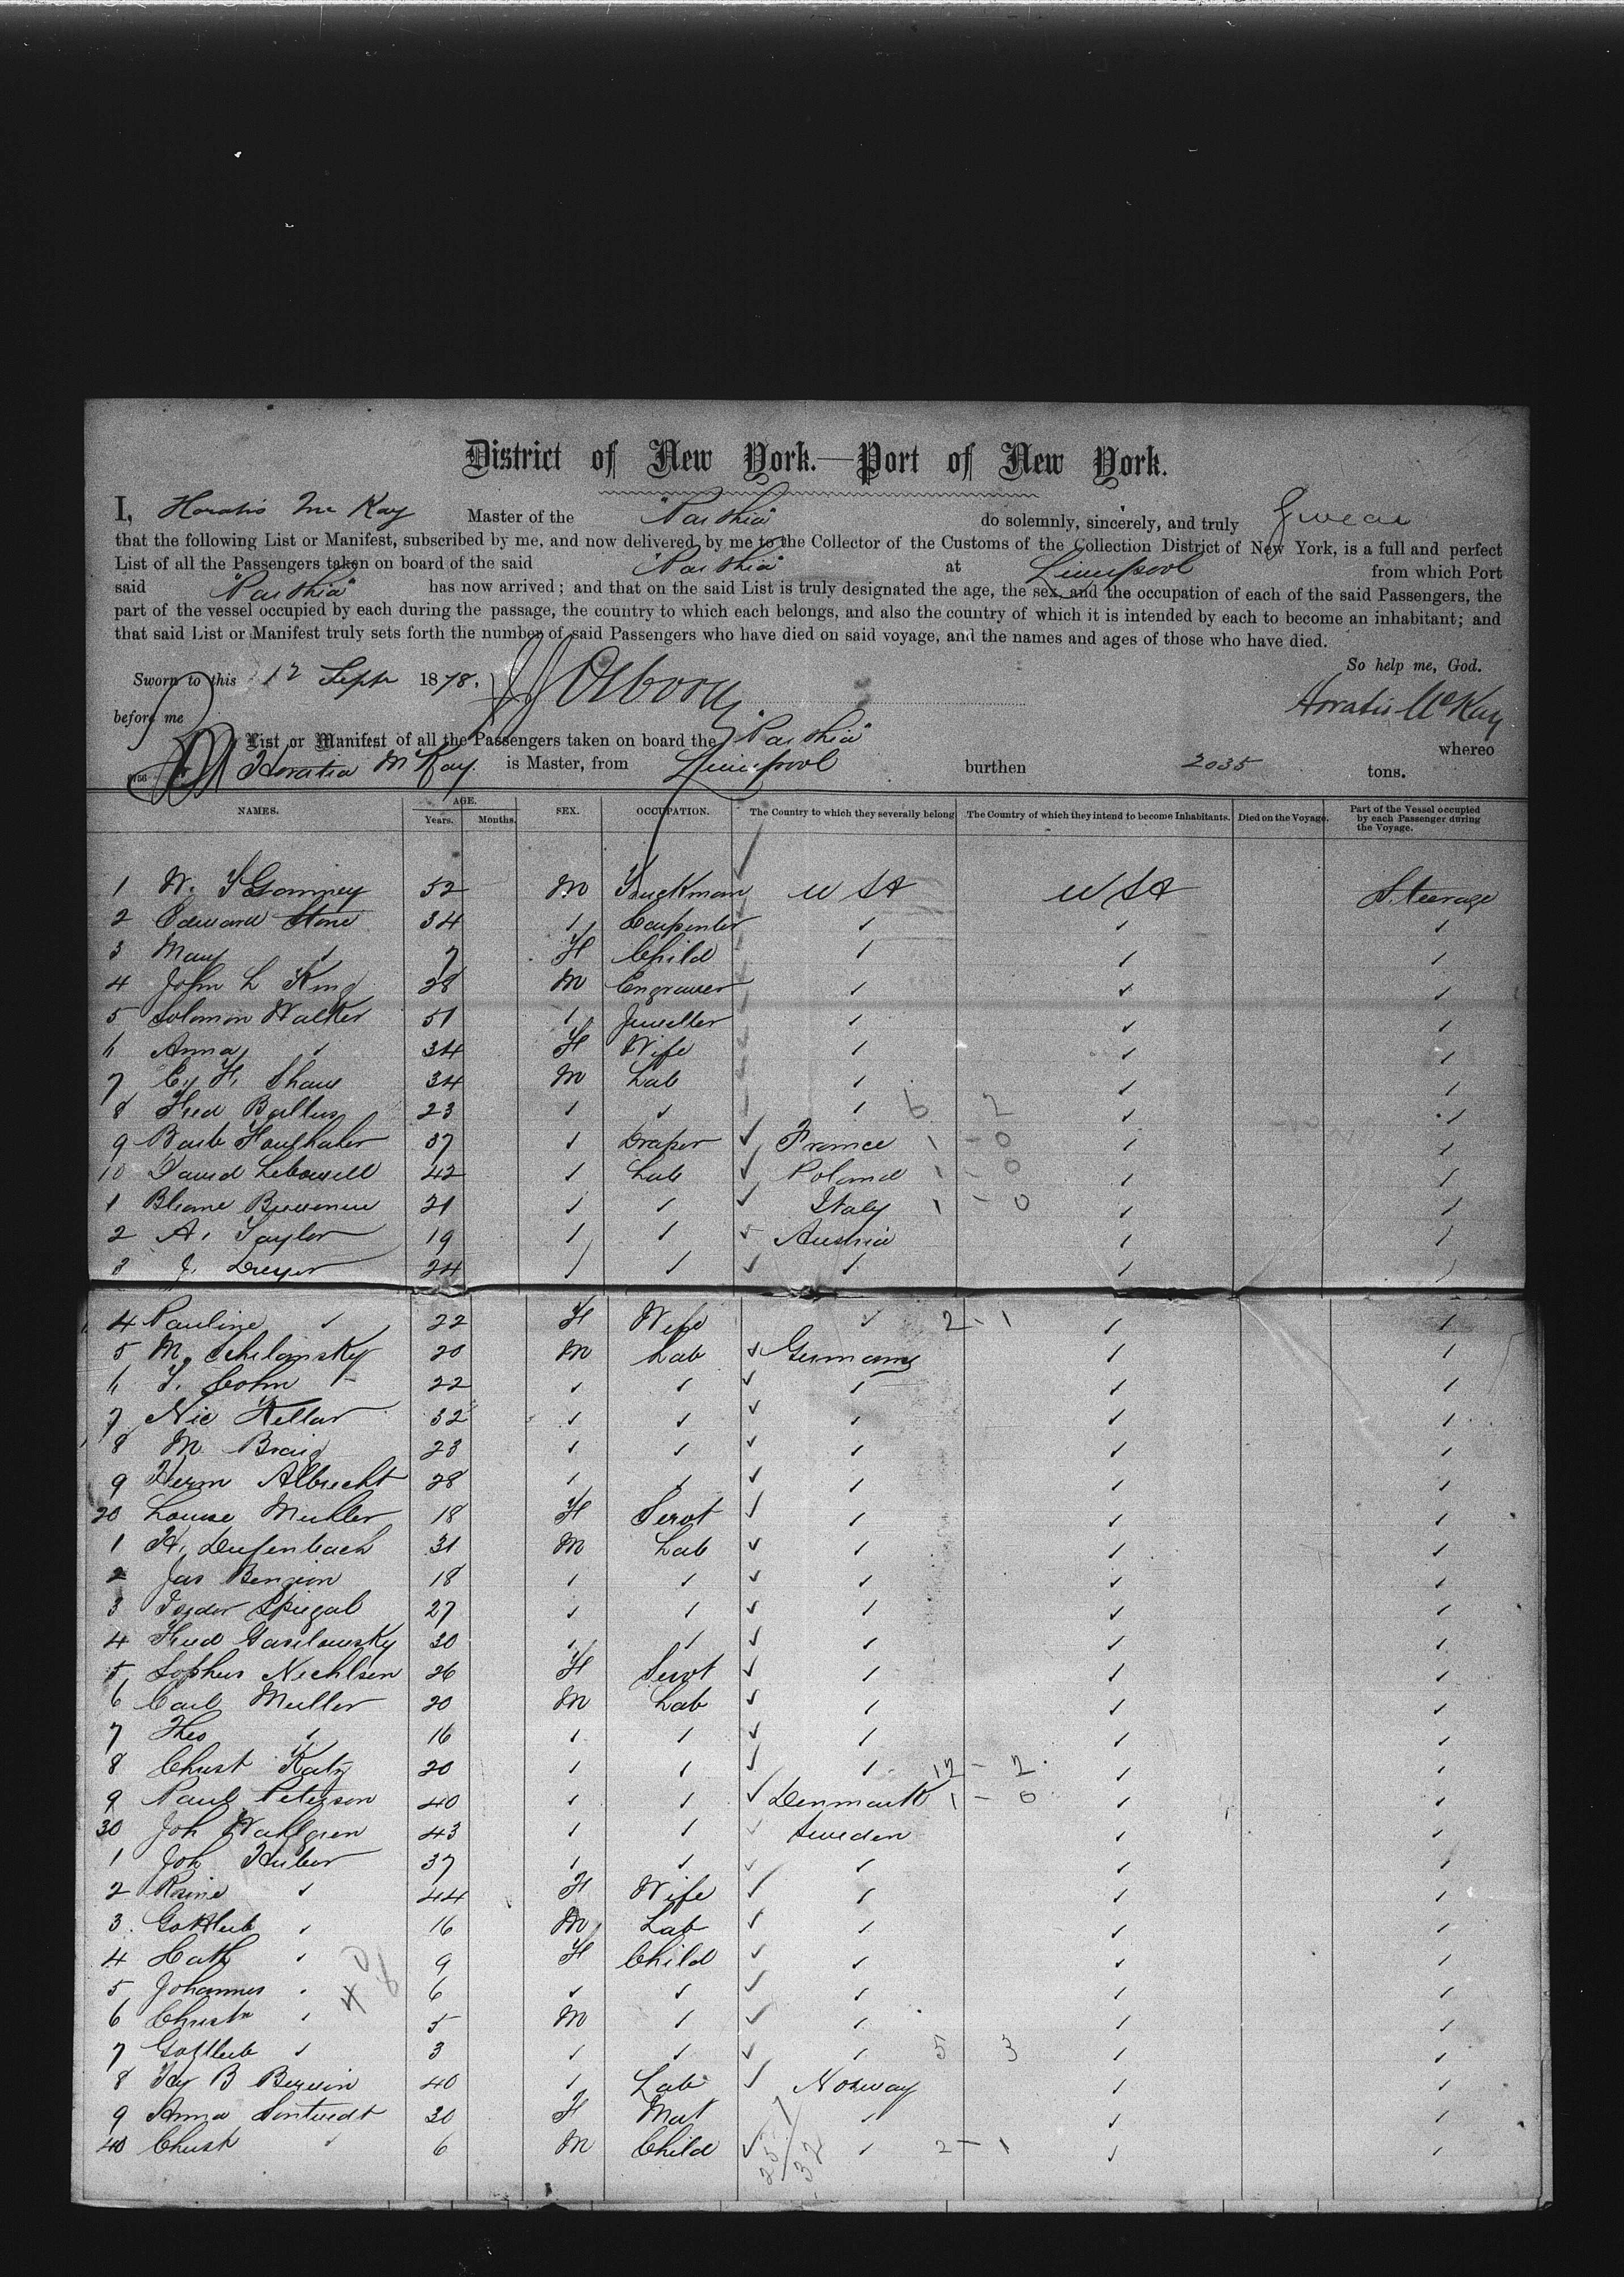 District of New York.—Port of New York.
I, Horatio Mc Kay Master of the "Parthia" do solemnly, sincerely, and truly Swear
that the following List or Manifest, subscribed by me, and now delivered by me to the Collector of the Customs of the Collection District of New York, is a full and perfect
List of all the Passengers taken on board of the said "Parthia" at Liverpool from which Port
said "Parthia" has now arrived; and that on the said List is truly designated the age, the sex, and the occupation of each of the said Passengers, the
part of the vessel occupied by each during the passage, the country to which each belongs, and also the country of which it is intended by each to become an inhabitant; and
that said List or Manifest truly sets forth the number of said Passengers who have died on said voyage, and the names and ages of those who have died.
So help me, God.
Sworn to this 12 Sept 1878. Osborn
before me Horatio McKay
List or Manifest of all the Passengers taken on board the "Parthia" whereo
Horatio McKay. is Master, from Liverpool burthen 2035 tons.
NAMES. AGE. SEX. OCCUPATION. The Country to which they severally belong The Country of which they intend to become Inhabitants. Died on the Voyage. Part of the Vessel occupied by each Passenger during the Voyage.
Years. Months.
1 W. 52 M Truckman USA USA Steerage
2 Edward Stone 34 " Carpenter " " "
3 Mary " 7 F Child " " "
4 John L King 28 M Engraver " " "
5 Solomon Walter 51 " Jeweller " " "
6 Anna " 34 F Wife " " "
7 Shaw 34 M Lab " " "
8 Fred 23 " " " 6 2 " "
9 37 " Draper France 1 - 0 " "
10 David 42 " Lab Poland 1 - 0 " "
1 21 " " Italy 1 - 0 " "
2 A. Taylor 19 " " Austria " "
3 J. Dreyer 24 " " " " "
4 Pauline " 22 F Wife " 2 - 1 " "
5 M. 20 M Lab Germany " "
6 Cohn 22 " " " " "
7 Nic Kellar 32 " " " " "
8 M Braig 23 " " " " "
9 Herm Albrecht 28 " " " " "
20 Louise Muller 18 F Servt " " "
1 H. Diefenbach 31 M Lab " " "
2 Jas Benzion 18 " " " " "
3 Spiegal 27 " " " " "
4 Fred 30 " " " " "
5 Sophus Nichlsen 26 F Servt " " "
6 Carl Muller 20 M Lab " " "
7 Theo " 16 " " " " "
8 Christ Katz 20 " " " 12 - 2 " "
9 Paul Peterson 40 " " Denmark 1 - 0 " "
30 Joh Wahlgren 43 " " Sweden " "
1 Joh Huber 37 " " " " "
2 Rosine " 44 F Wife " " "
3 Gottlieb " 16 M Lab " " "
4 Cath " 9 F Child " " "
5 Johannes " 6 " " " " "
6 Christn " 5 M " " " "
7 Gottlieb " 3 " " " 5 3 " "
8 B 40 " Lab Norway " "
9 Anna 30 F Mat " " "
40 Christ " 6 M Child " 2 - 1 " "
25 / 32